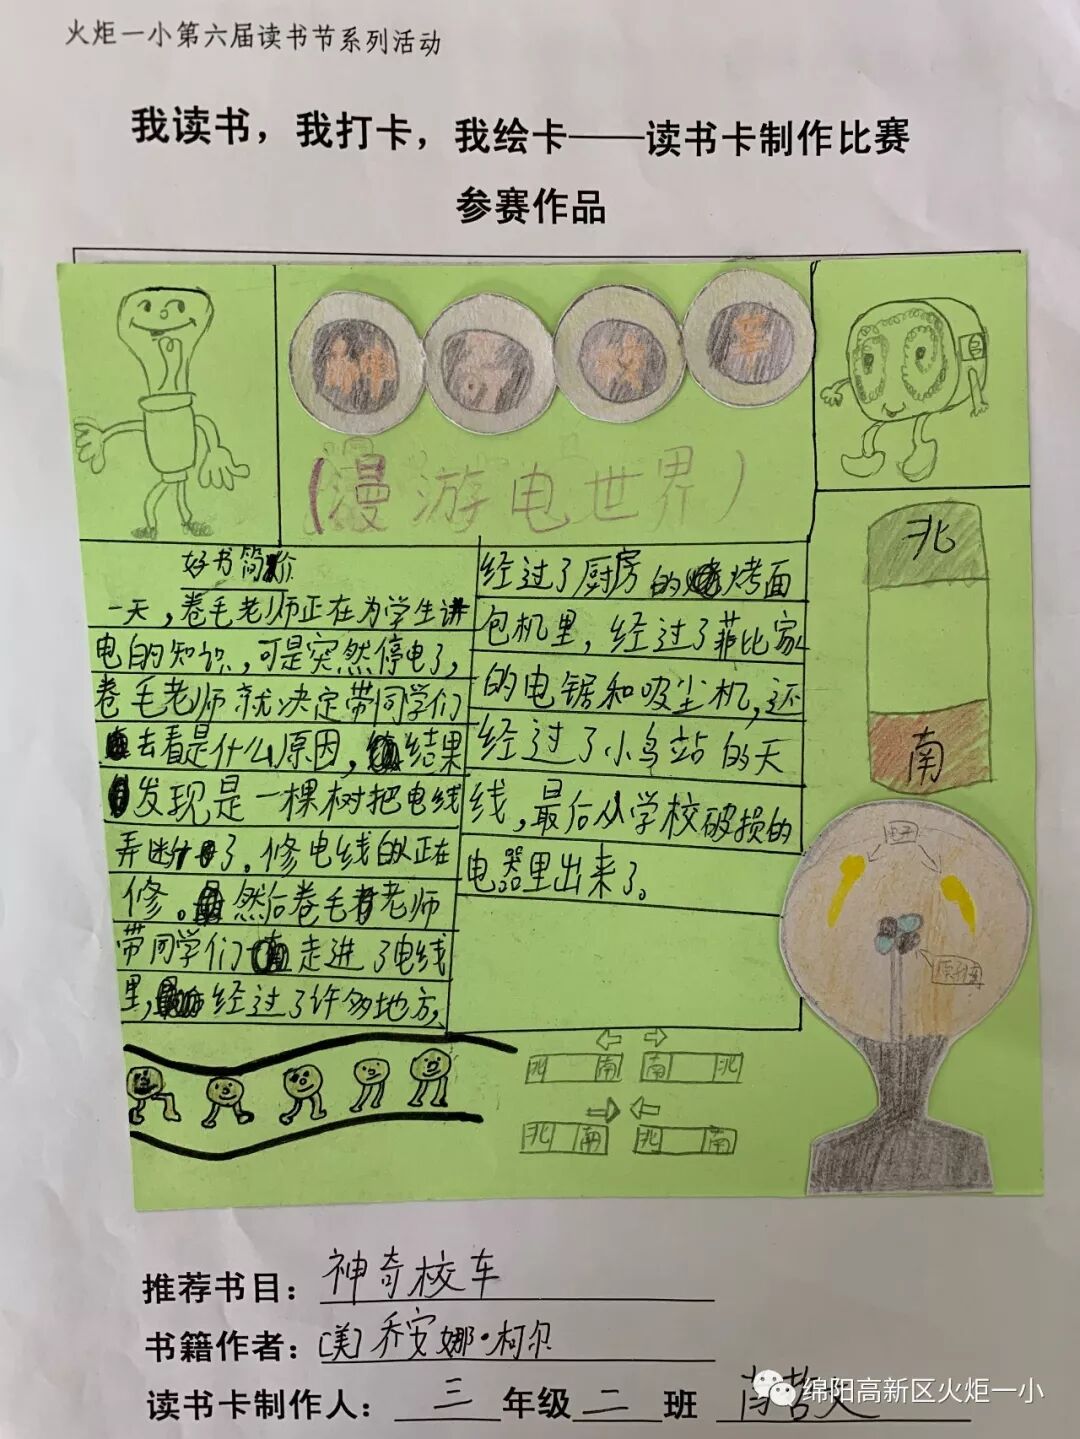 火炬一小第六届读书节系列活动
我读书，我打卡，我绘卡——读书卡制作比赛
参赛作品
神奇校车
(漫游电世界)
好书简介
一天，卷毛老师正在为学生讲
电的知识，可是突然停电了，
卷毛老师就决定带同学们
去看是什么原因，结果
发现是一棵树把电线
弄断了。修电线的人正在
修。然后卷毛老师
带同学们走进了电线
里，经过了许多地方，
经过了厨房的烤面
包机里，经过了菲比家
的电锯和吸尘机，还
经过了小鸟站的天
线，最后从学校破损的
电器里出来了。
北
南
电子
原子核
北 南 南 北
北 南 北 南
推荐书目：神奇校车
书籍作者：[美]乔安娜·柯尔
读书卡制作人：三年级二班
绵阳高新区火炬一小